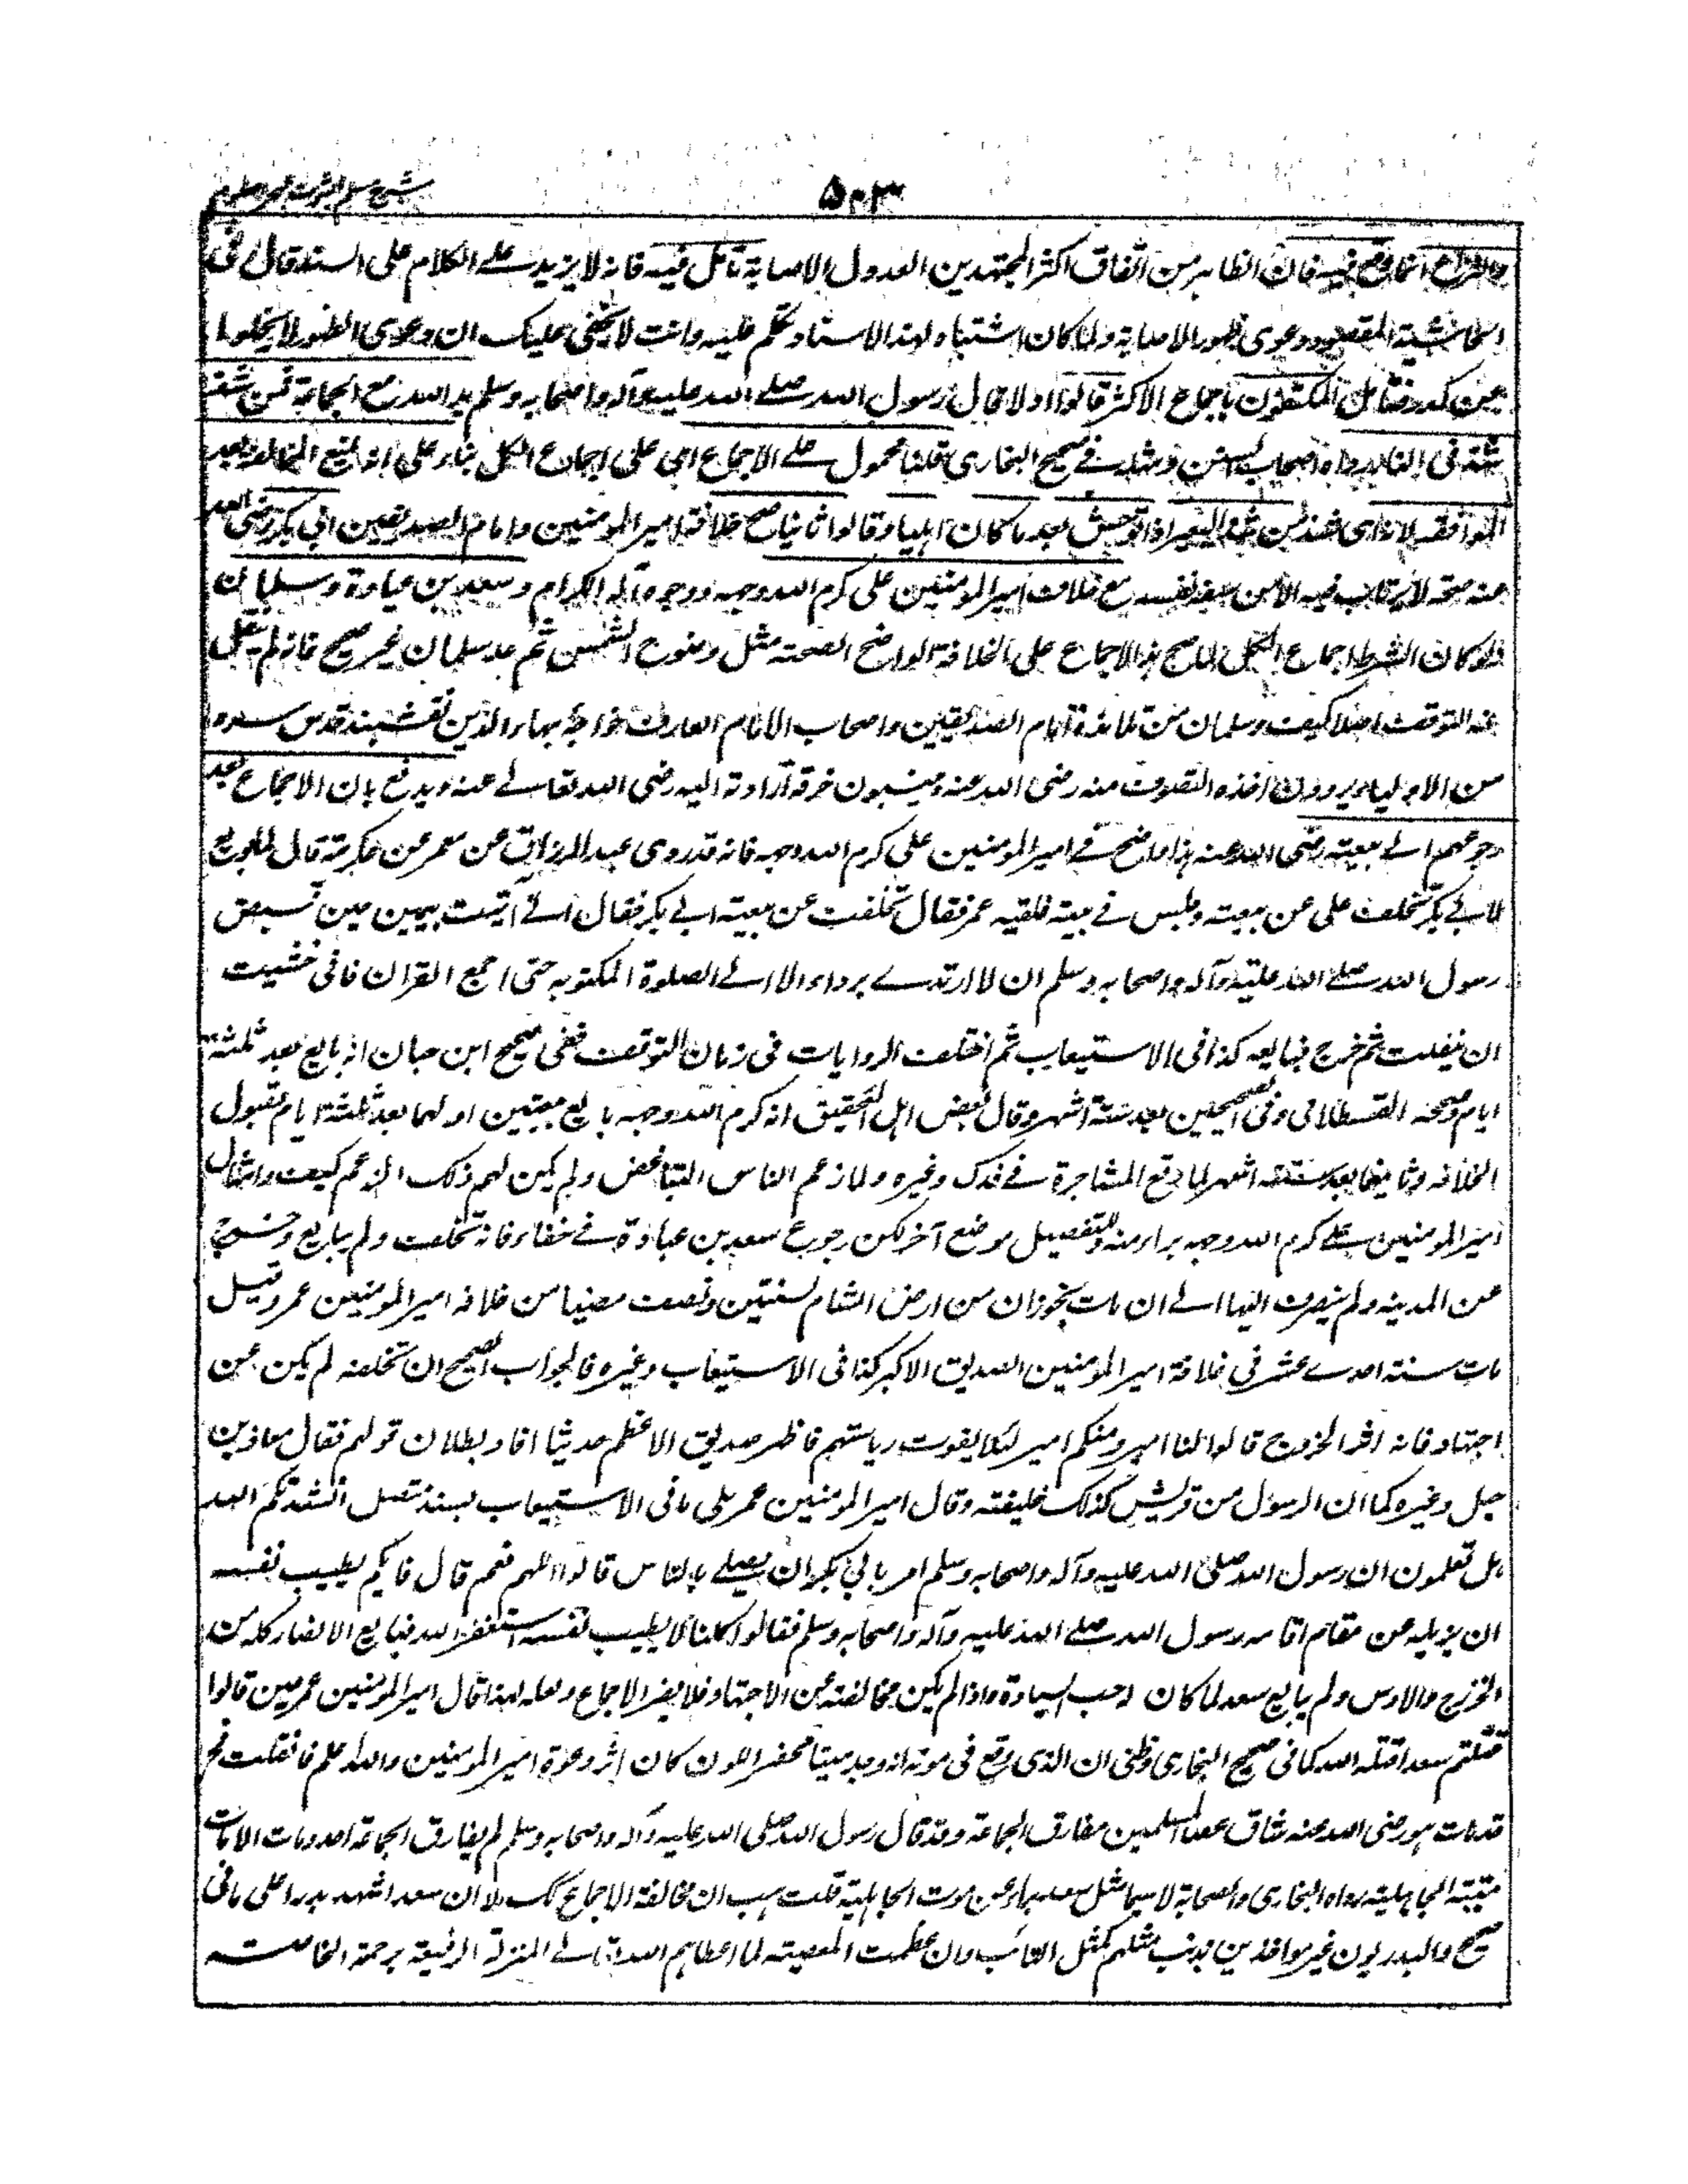 ۵۰۳
شرح مسلم الثبوت بحر العلوم
والنزاع انما وقع فيه فان الظاهر من اتفاق اكثر المجتهدين العدول الاصابة تامل فيه فانه لا يزيد على الكلام على السند قال في
الحاشية المقصود دعوى ظهور الاصابة ولما كان اشتباه لهذا الاستاد تكلم عليه وانت لا يخفى عليك ان دعوى الظهور لا يخلوا
عن كدر فتامل المكتفون باجماع الاكثر قالوا اولا قال رسول الله صلى الله عليه وآله واصحابه وسلم يد الله مع الجماعة فمن شذ
شذ في النار رواه اصحاب السنن ومثله في صحيح البخاري قلنا محمول على الاجماع اي على اجماع الكل بناء على انه لمنع المخالفة بعد
الموافقة لا نداى شذ من شذ البعير اذا توحش بعد ما كان اهليا وقالوا ثانيا صح خلافة امير المومنين وامام الصديقين ابي بكر رضى الله
عنه صحة لا يرتاب فيه الا من سفه نفسه مع خلاف امير المومنين على كرم الله وجهه ووجوه آله الكرام وسعد بن عبادة وسلمان
فلو كان الشرط اجماع الكل لما صح هذا الاجماع على الخلافة الواضح الصحة مثل وضوح الشمس ثم عد سلمان غير صحيح فانه لم ينقل
عنه التوقف اصلا كيف وسلمان من تلامذة امام الصديقين واصحاب الامام العارف خواجه بهاء الدين نقشبند قدس سره
من الاولياء يروون اخذه التصوف منه رضى الله عنه وينسبون خرقة ارادته اليه رضى الله تعالے عنه ويدفع بان الاجماع بعد
رجوعهم الے بيعته رضى الله عنه هذا واضح في امير المومنين على كرم الله وجهه فانه قد روى عبد الرزاق عن معمر عن عكرمة قال لما بويع
لابي بكر تخلف على عن بيعته وجلس في بيته فلقيه عمر فقال تخلفت عن بيعة ابي بكر فقال انے آليت بيمين حين قبض
رسول الله صلے الله عليه وآله واصحابه وسلم ان لا ارتدے برداء الا الے الصلوة المكتوبه حتى اجمع القران فانى خشيت
ان ينفلت ثم خرج فبايعه كذا في الاستيعاب ثم اختلف الروايات في زمان التوقف ففى صحيح ابن حبان انه بايع بعد ثلثة
ايام وصححه القسطلانى وفى الصحيحين بعد ستة اشهر وقال بعض اهل التحقيق انه كرم الله وجهه بايع بيعتين اولهما بعد ثلثة ايام لقبول
الخلافه وثانيهما بعد ستته اشهر لما وقع المشاجرة فے فدك وغيره ولما زعم الناس التباغض ولم يكن لهم ذلك الزعم كيف وامثال
امير المومنين على كرم الله وجهه براء منه وللتفصيل موضع آخر لكن رجوع سعد بن عبادة فے خفاء فانه تخلف ولم يبايع وخرج
عن المدينه ولم ينصرف اليها الے ان مات بحوران من ارض الشام لسنتين ونصف مضيا من خلافه امير المومنين عمر وقيل
مات سنة احدے عشر فى خلافة امير المومنين الصديق الاكبر كذا فى الاستيعاب وغيره فالجواب الصحيح ان تخلفه لم يكن عن
اجتهاد فانه اثر الخزرج قالوا لنا امير ومنكم امير لئلا يفوت رياستهم فاظهر صديق الاعظم حديثا افاد بطلان قولهم فقال معاذ بن
جبل وغيره كما ان الرسول من قريش كذلك خليفته وقال امير المومنين عمر بلى ما فى الاستيعاب بسند متصل انشدتكم الله
هل تعلمون ان رسول الله صلى الله عليه وآله واصحابه وسلم امر بابي بكر ان يصلے بالناس قالوا اللهم نعم قال فايكم يطيب نفسه
ان يزيله عن مقام اقامه رسول الله صلے الله عليه وآله واصحابه وسلم فقالوا كلنا لا يطيب نفسه استغفر الله فبايع الانصار كله من
الخزرج والاوس ولم يبايع سعد لما كان احب السيادة واذا لم يكن مخالفته عن الاجتهاد فلا يضر الاجماع ولعله لهذا قال امير المومنين عمر حين قالوا
قتلتم سعدا قتله الله كما فى صحيح البخارى وظنى ان الذى وقع فى موته انه وجد ميتا مخضر اللون كان اثر دعوة امير المومنين والله اعلم فان قلت فح
قد مات هو رضى الله عنه شاق عصا المسلمين مفارق الجماعة وقد قال رسول الله صلى الله عليه وآله واصحابه وسلم لم يفارق الجماعة احد ومات الا مات
ميتة الجاهلية رواه البخارى والصحابة لا سيما مثل سعد براء عن موت الجاهلية قلت هب ان مخالفة الاجماع كك الا ان سعدا شهد بدرا على ما فى
صحيح والبدريون غير مواخذين بذنب مثلهم كمثل التائب وان عظمت المعصية لما اعطاهم الله تعالے المنزلة الرفيعة برحمة الخاصته